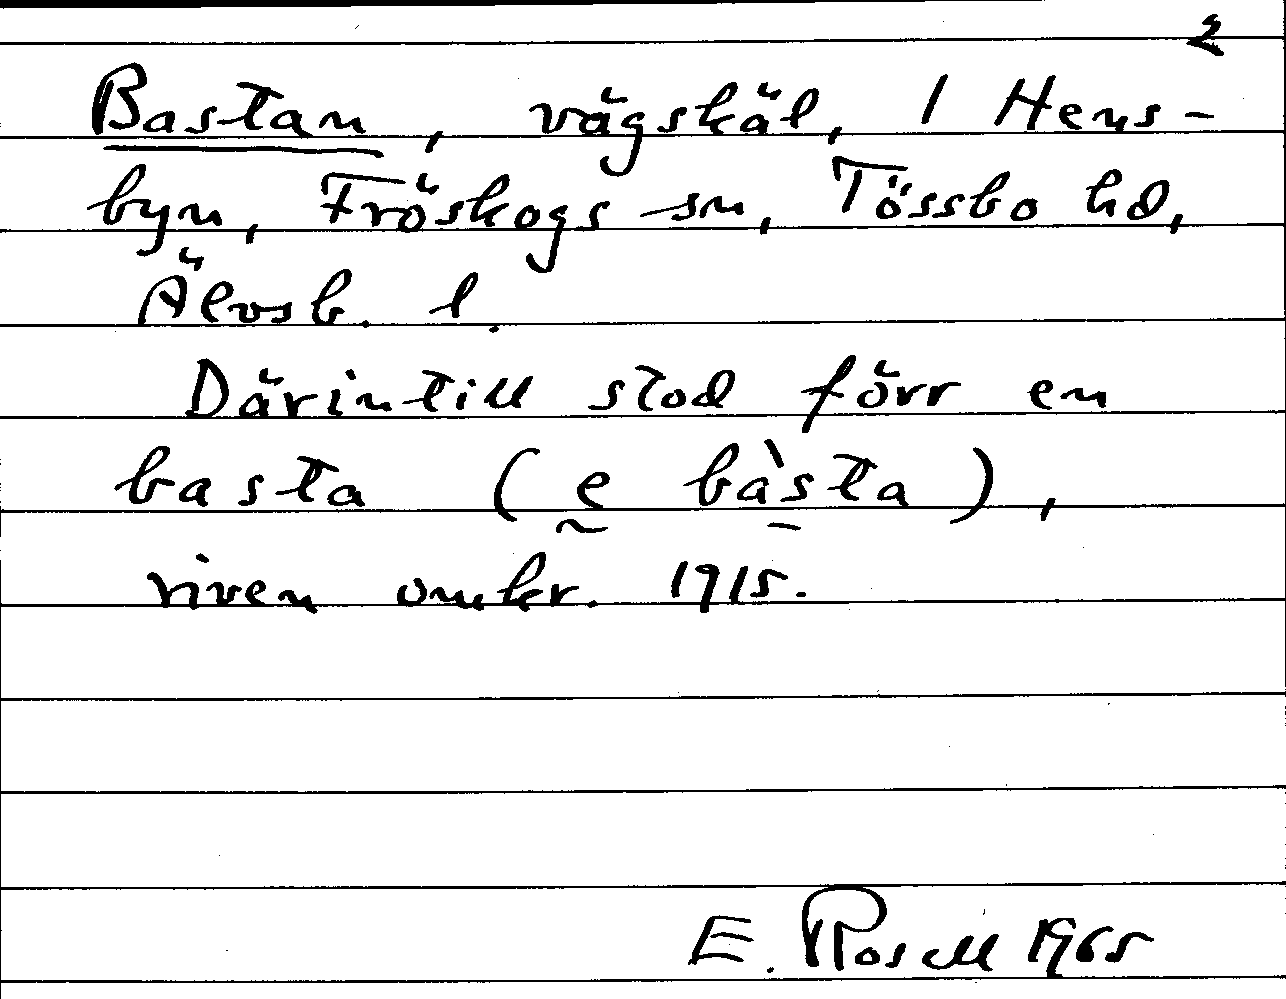 2
Bastan, vägskäl, 1 Hens-
byn, Fröskogs sn, Tössbo hd,
Älvsb. l.
Därintill stod förr en
basta (e bàsta),
riven omkr. 1915.
E. Rosell 1965